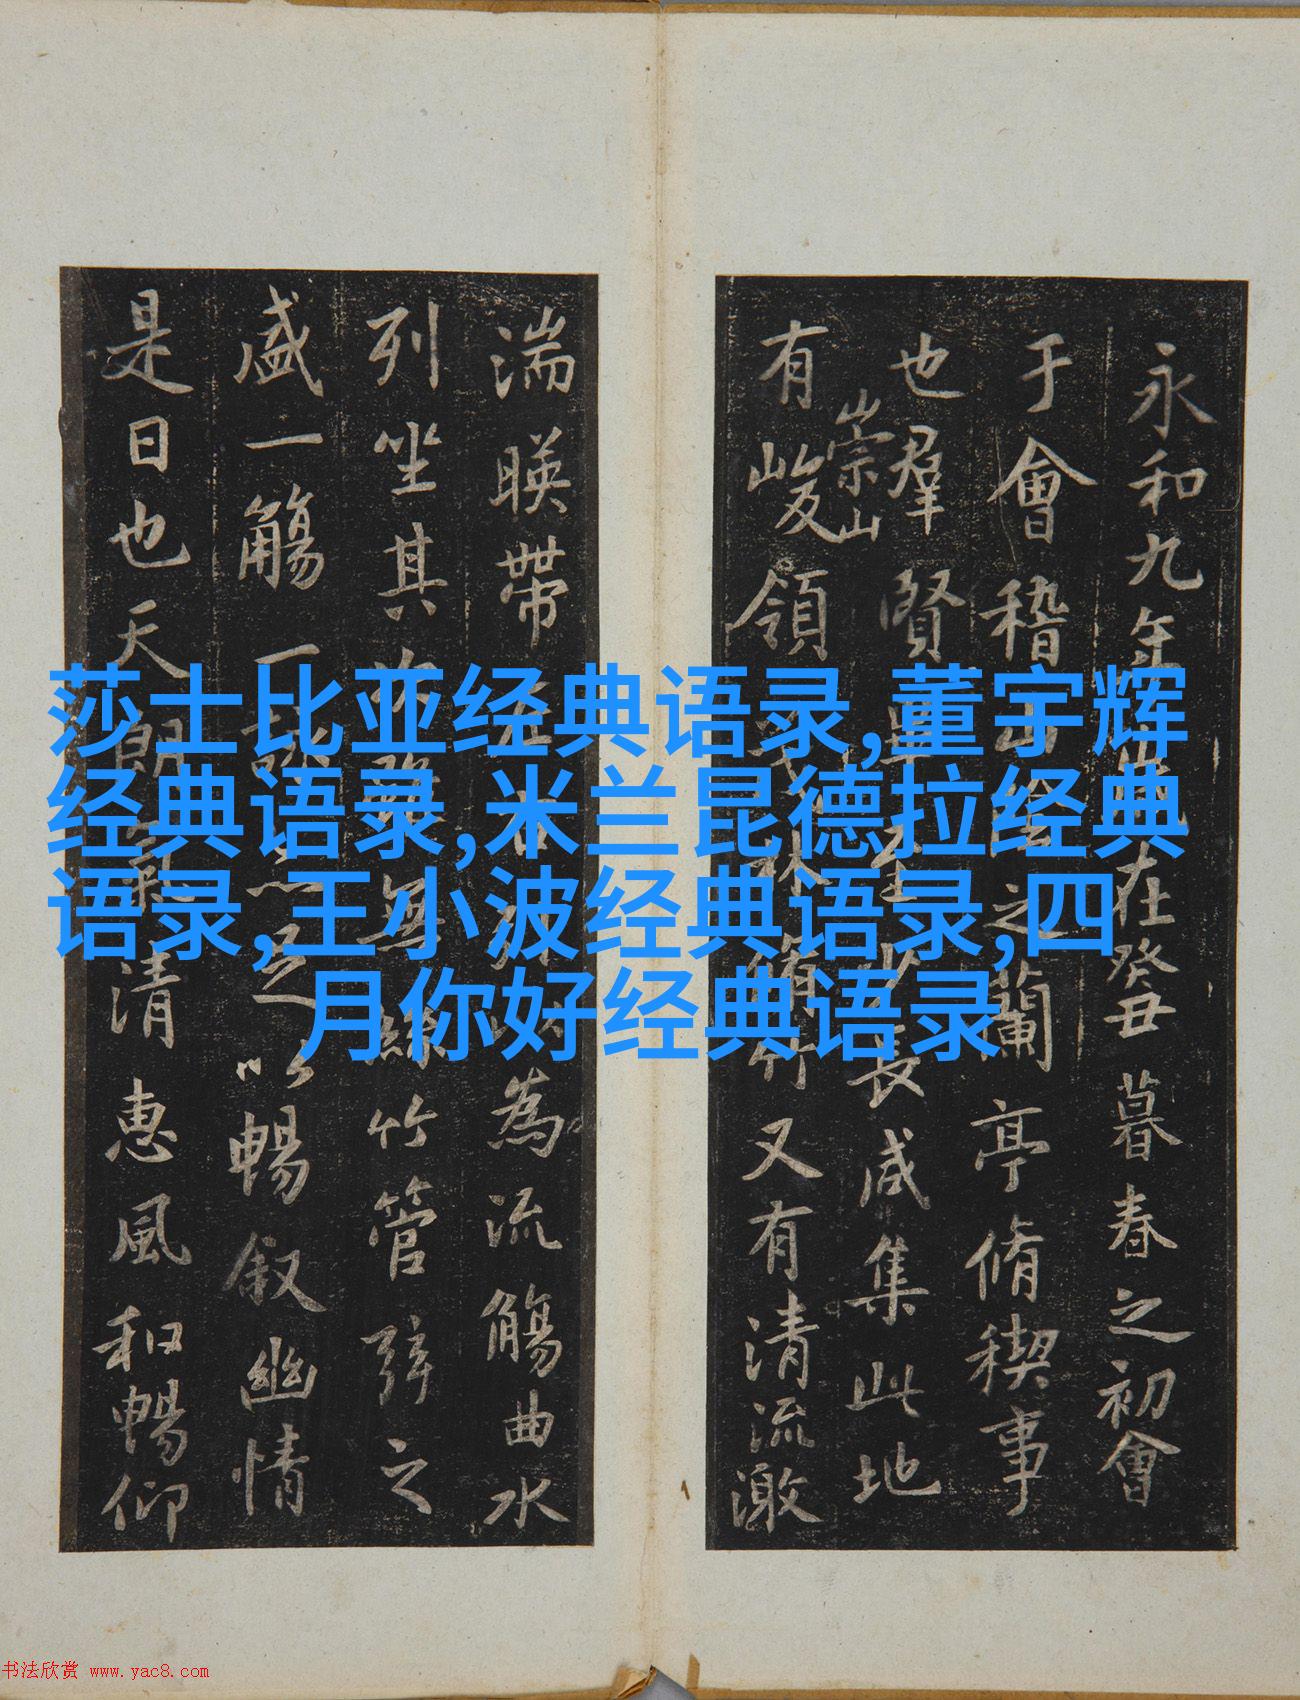 永和九年歲在癸丑暮春之初會
于會稽山陰之蘭亭脩禊事
也羣賢畢至少長咸集此地
崇山
有峻領茂林脩竹又有清流激
湍暎帶左右引以為流觴曲水
列坐其次雖無絲竹管弦之
盛一觴一詠亦足以暢叙幽情
是日也天朗氣清惠風和暢仰
莎士比亚经典语录,董宇辉
经典语录,米兰昆德拉经典
语录,王小波经典语录,四
月你好经典语录
书法欣赏 www.yac8.com